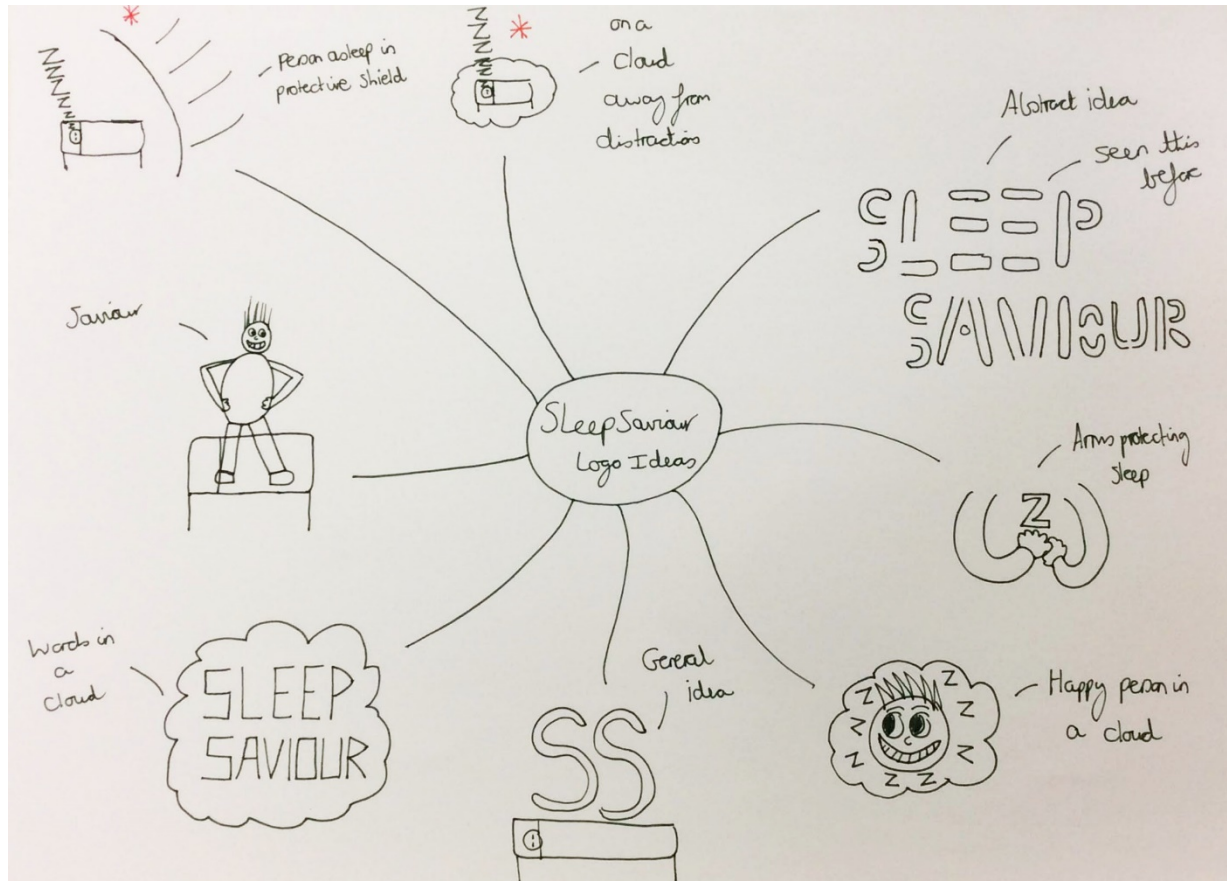 ZZZZZZZ
Person asleep in
protective shield
ZZZZZZ
on a
cloud
away from
distractions
Abstract idea
seen this
before
SLEEP
SAVIOUR
Saviour
SleepSaviour
Logo Ideas
Arms protecting
sleep
Z
Words in
a
cloud
SLEEP
SAVIOUR
General
idea
SS
Happy person in
a cloud
Z Z Z Z Z Z Z Z Z Z Z